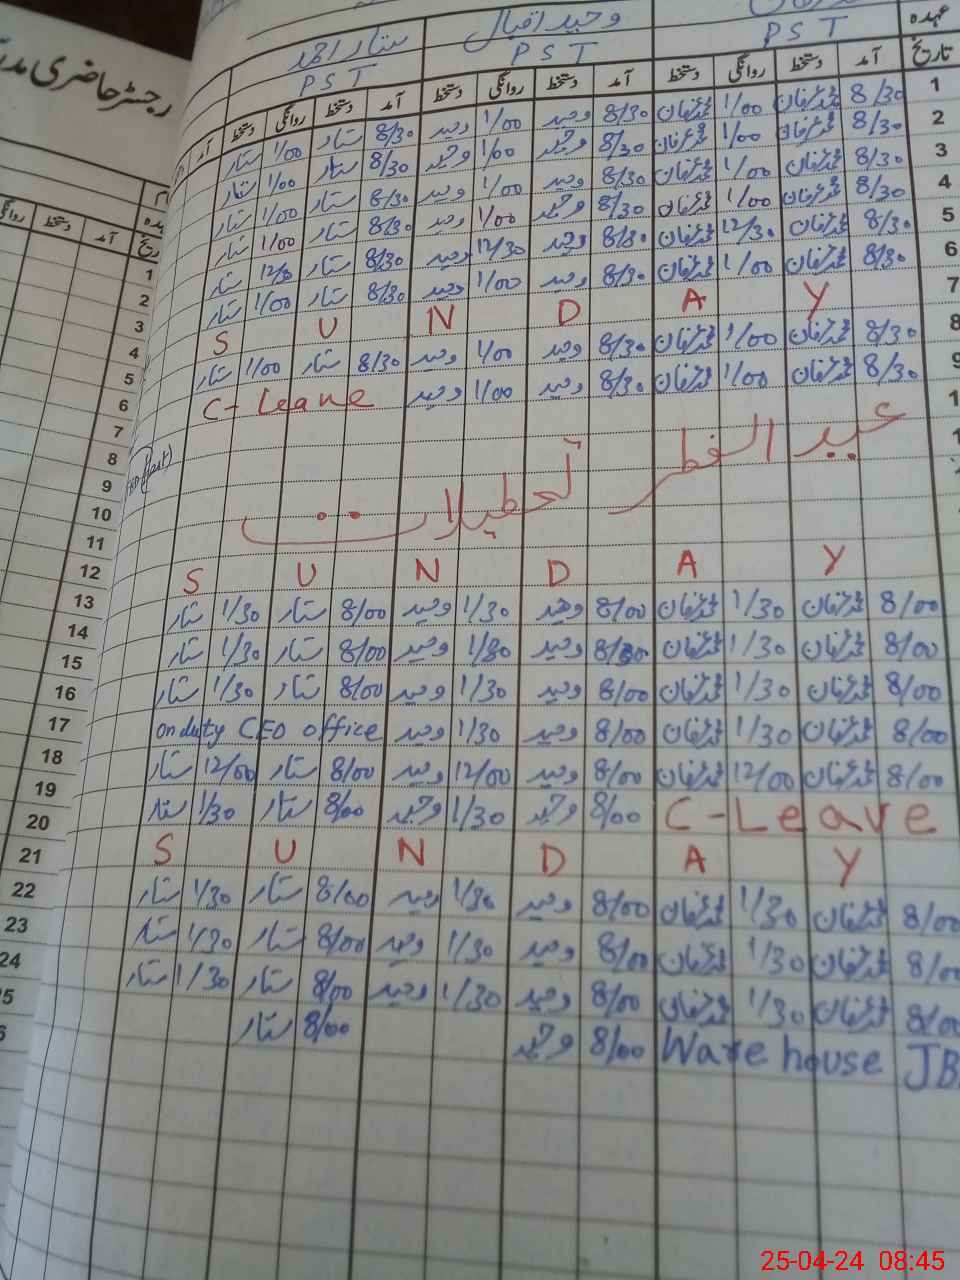 رجسٹر حاضری
ستار احمد وحید اقبال
PST PST PST عہدہ
تاریخ آمد دستخط روانگی دستخط آمد دستخط روانگی دستخط آمد دستخط روانگی دستخط آمد
1 8/30 محمد عرفان 1/00 محمد عرفان 8/30 وحید 1/00 وحید 8/30 ستار 1/00 ستار
2 8/30 محمد عرفان 1/00 محمد عرفان 8/30 وحید 1/00 وحید 8/30 ستار 1/00 ستار
3 8/30 محمد عرفان 1/00 محمد عرفان 8/30 وحید 1/00 وحید 8/30 ستار 1/00 ستار
4 8/30 محمد عرفان 1/00 محمد عرفان 8/30 وحید 1/00 وحید 8/30 ستار 1/00 ستار
5 8/30 محمد عرفان 12/30 محمد عرفان 8/30 وحید 12/30 وحید 8/30 ستار 12/30 ستار
6 8/30 محمد عرفان 1/00 محمد عرفان 8/30 وحید 1/00 وحید 8/30 ستار 1/00 ستار
7 S U N D A Y
8 8/30 محمد عرفان 1/00 محمد عرفان 8/30 وحید 1/00 وحید 8/30 ستار 1/00 ستار
9 8/30 محمد عرفان 1/00 محمد عرفان 8/30 وحید 1/00 وحید C-Leave
عید الفطر تعطیلات
S U N D A Y
8/00 محمد عرفان 1/30 محمد عرفان 8/00 وحید 1/30 وحید 8/00 ستار 1/30 ستار
8/00 محمد عرفان 1/30 محمد عرفان 8/00 وحید 1/30 وحید 8/00 ستار 1/30 ستار
8/00 محمد عرفان 1/30 محمد عرفان 8/00 وحید 1/30 وحید 8/00 ستار 1/30 ستار
8/00 محمد عرفان 1/30 محمد عرفان 8/00 وحید 1/30 وحید on duty CEO office
8/00 محمد عرفان 12/00 محمد عرفان 8/00 وحید 12/00 وحید 8/00 ستار 12/00 ستار
C-Leave 8/00 وحید 1/30 وحید 8/00 ستار 1/30 ستار
S U N D A Y
8/00 محمد عرفان 1/30 محمد عرفان 8/00 وحید 1/30 وحید 8/00 ستار 1/30 ستار
8/00 محمد عرفان 1/30 محمد عرفان 8/00 وحید 1/30 وحید 8/00 ستار 1/30 ستار
8/00 محمد عرفان 1/30 محمد عرفان 8/00 وحید 1/30 وحید 8/00 ستار 1/30 ستار
Ware house JB 8/00 وحید 8/00 ستار
روانگی دستخط آمد تاریخ
1
2
3
4
5
6
7
8
9
10
11
12
13
14
15
16
17
18
19
20
21
22
23
24
25-04-24 08:45